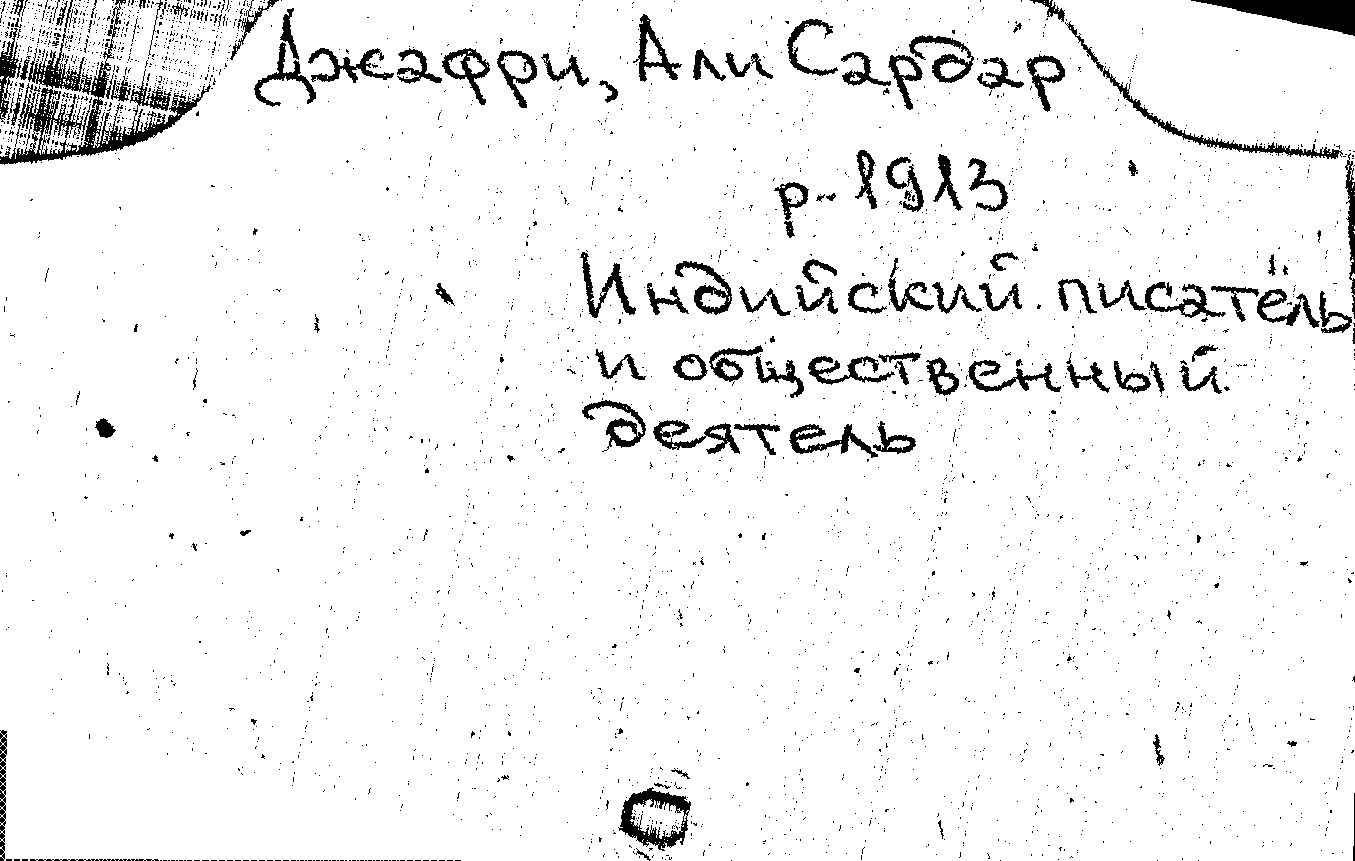 Джафри, Али Сардар
р. 1913
Индийский писатель
и общественный
деятель